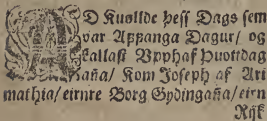 AD Kuollde þess Dags sem
var Appanga Dagur/ og
kallast Vpphaf Þuottdag
anna/ Kom Joseph af Ari
mathia/ eirnre Borg Gydinganna/ eirn
Rijk